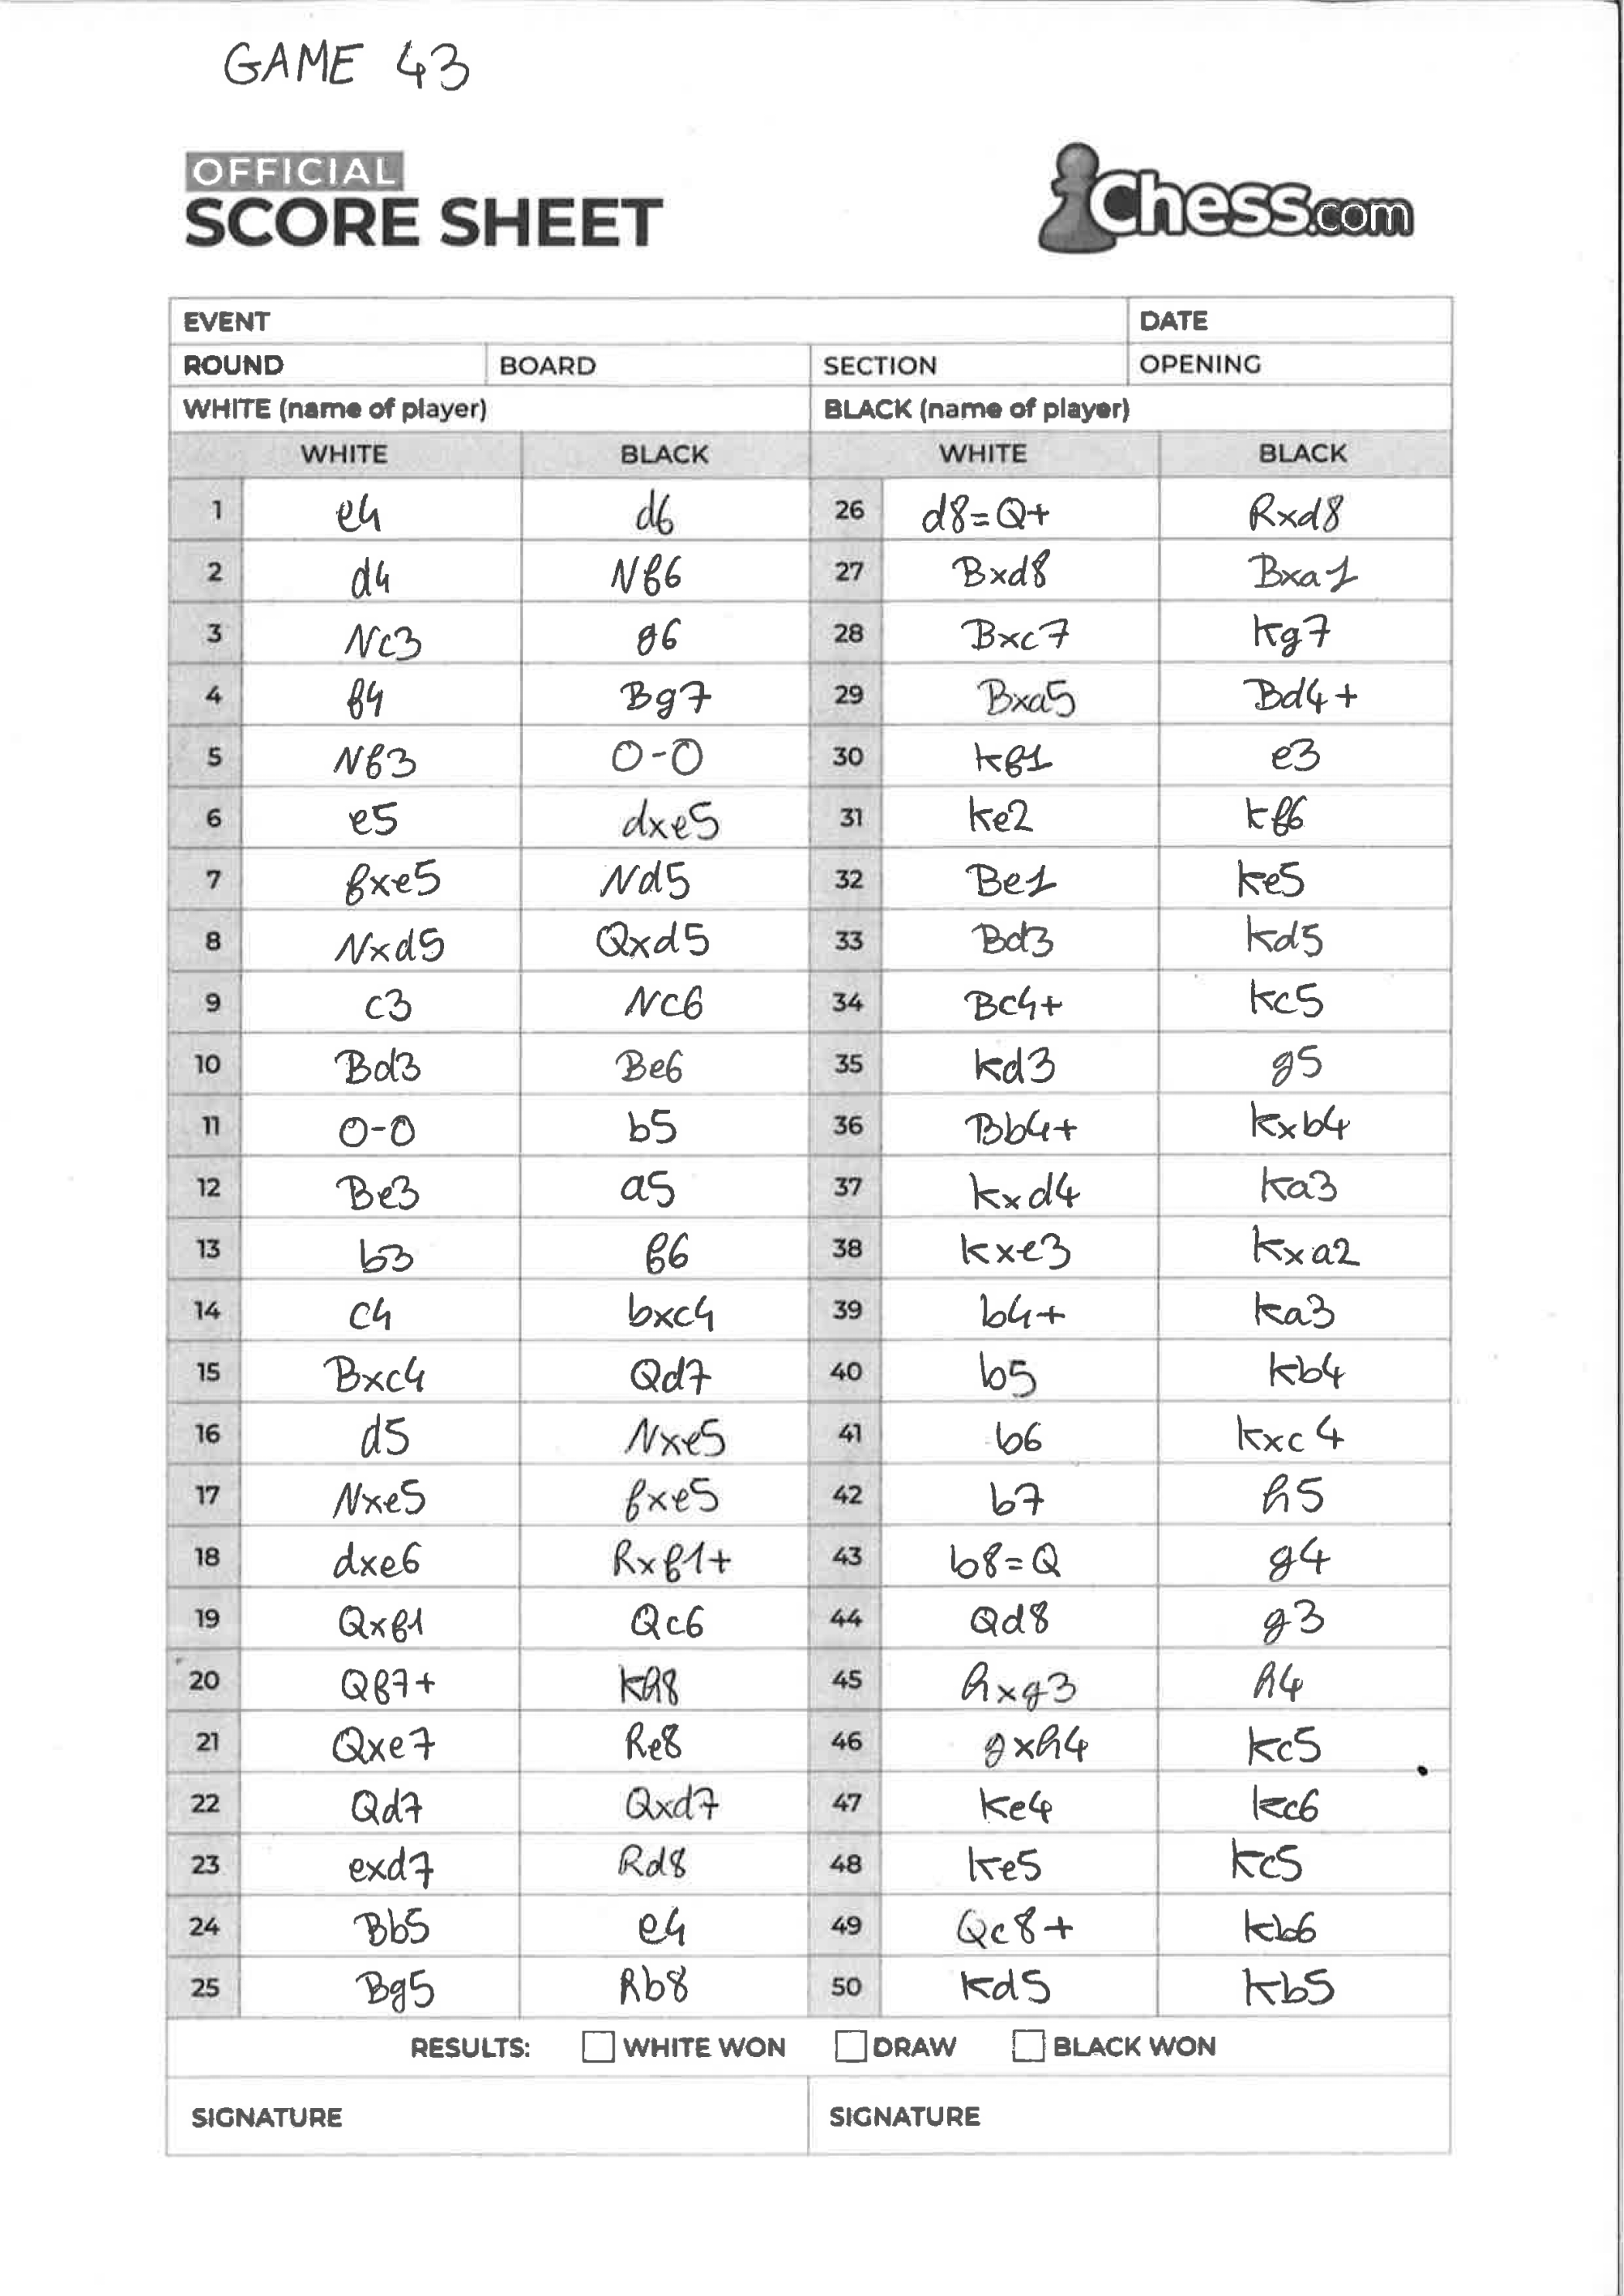 GAME 43
OFFICIAL
SCORE SHEET
Chess.com
EVENT DATE
ROUND BOARD SECTION OPENING
WHITE (name of player) BLACK (name of player)
WHITE BLACK WHITE BLACK
1 e4 d6 26 d8=Q+ Rxd8
2 d4 Nf6 27 Bxd8 Bxa1
3 Nc3 g6 28 Bxc7 kg7
4 f4 Bg7 29 Bxa5 Bd4+
5 Nf3 0-0 30 kf1 e3
6 e5 dxe5 31 ke2 kf6
7 fxe5 Nd5 32 Be1 ke5
8 Nxd5 Qxd5 33 Bd3 kd5
9 c3 Nc6 34 Bc4+ kc5
10 Bd3 Be6 35 kd3 g5
11 0-0 b5 36 Bb4+ kxb4
12 Be3 a5 37 kxd4 ka3
13 b3 f6 38 kxe3 kxa2
14 c4 bxc4 39 b4+ ka3
15 Bxc4 Qd7 40 b5 kb4
16 d5 Nxe5 41 b6 kxc4
17 Nxe5 fxe5 42 b7 h5
18 dxe6 Rxf1+ 43 b8=Q g4
19 Qxf1 Qc6 44 Qd8 g3
20 Qf7+ kh8 45 hxg3 h4
21 Qxe7 Re8 46 gxh4 kc5
22 Qd7 Qxd7 47 ke4 kc6
23 exd7 Rd8 48 ke5 kc5
24 Bb5 e4 49 Qc8+ kb6
25 Bg5 Rb8 50 kd5 kb5
RESULTS: WHITE WON DRAW BLACK WON
SIGNATURE SIGNATURE